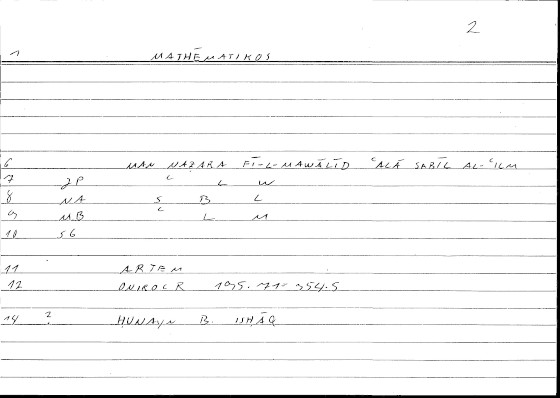 2
1 MATHĒMATIKOS
6 MAN NAẒARA FĪ-L-MAWĀLĪD ʿALĀ SABĪL AL-ʿILM
7 JP ʿ L W
8 NA S B L
9 MB ʿ L M
10 S6
11 ARTEM
12 ONIROCR
14 ? ḤUNAYN B. ISḤĀQ